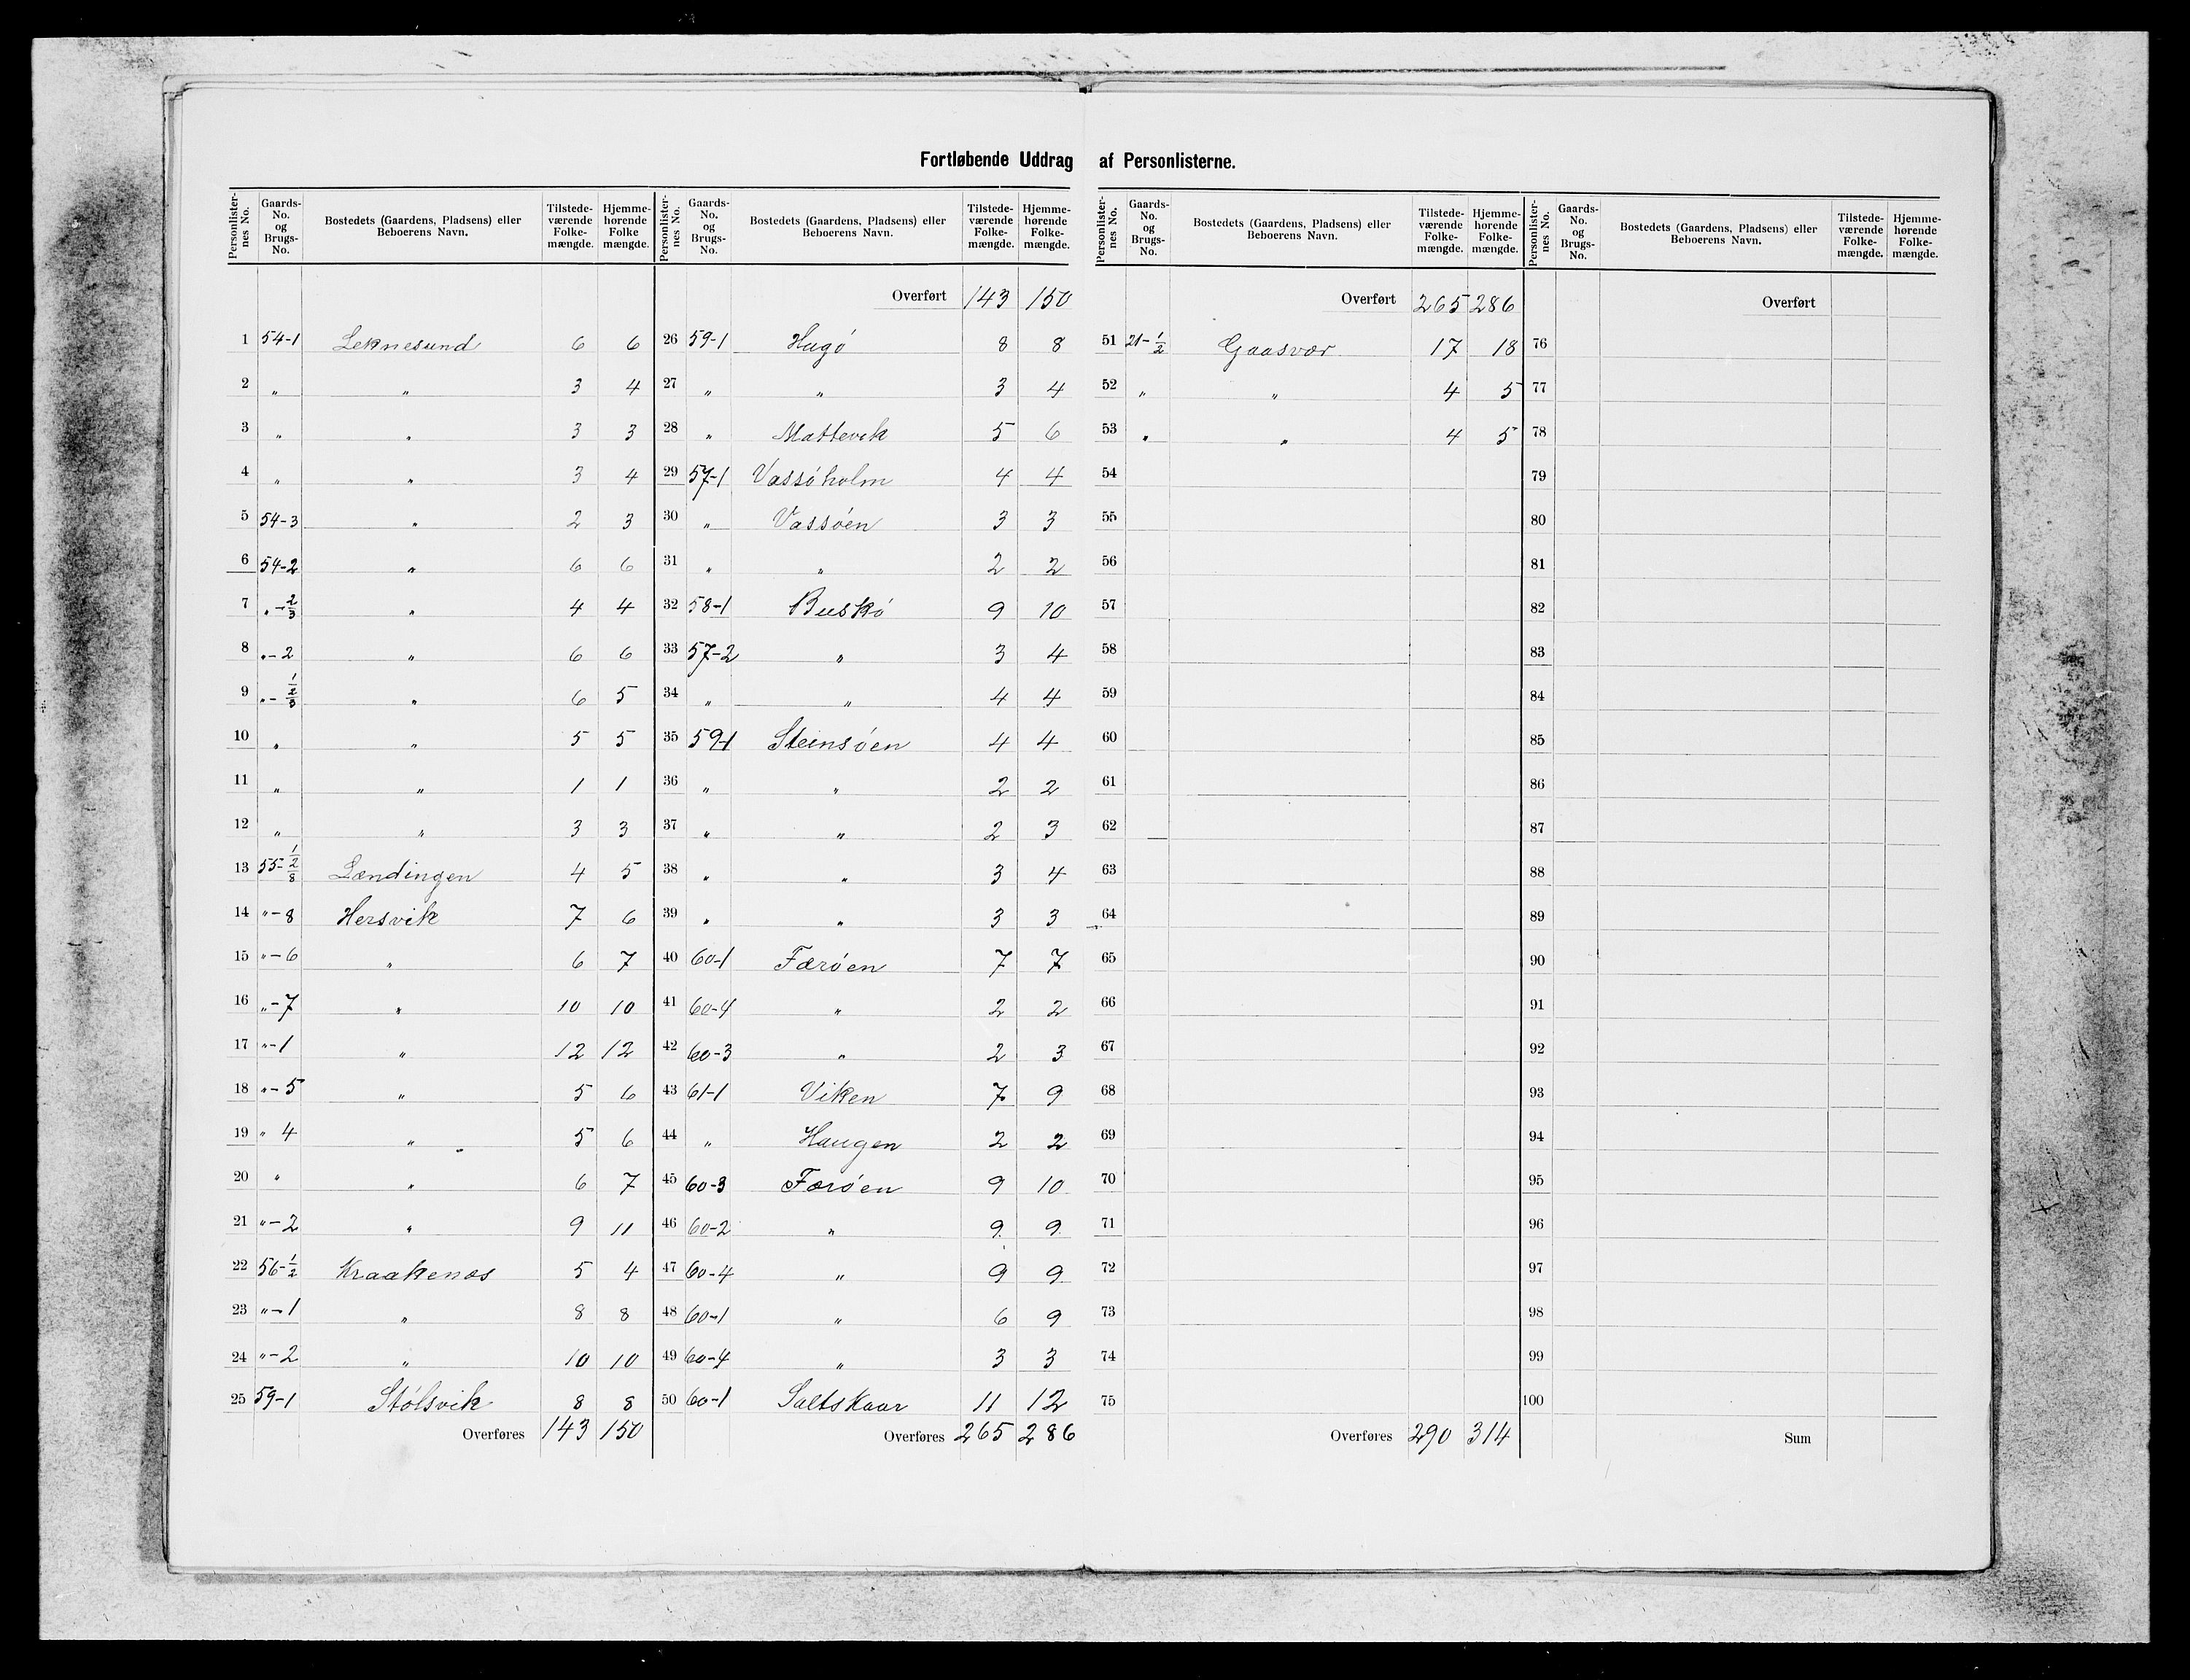 Fortløbende Uddrag af Personlisterne.
Personlister-nes No. | Gaards-No. og Brugs-No. | Bostedets (Gaardens, Pladsens) eller Beboerens Navn. | Tilstede-værende Folke-mængde. | Hjemme-hørende Folke mængde.
1 54-1 Leknesund 6 6
2 " " 3 4
3 " " 3 3
4 " " 3 4
5 54-3 " 2 3
6 54-2 " 6 6
7 "-2/3 " 4 4
8 "-2 " 6 6
9 "-1/2/3 " 6 5
10 " " 5 5
11 " " 1 1
12 " " 3 3
13 55-1/2/8 Lændingen 4 5
14 "-8 Hersvik 7 6
15 "-6 " 6 7
16 "-7 " 10 10
17 "-1 " 12 12
18 "-5 " 5 6
19 " 4 " 5 6
20 " " 6 7
21 "-2 " 9 11
22 56-1/2 Kraakenæs 5 4
23 "-1 " 8 8
24 "-2 " 10 10
25 59-1 Stølsvik 8 8
Overføres 143 150
Personlister-nes No. | Gaards-No. og Brugs-No. | Bostedets (Gaardens, Pladsens) eller Beboerens Navn. | Tilstede-værende Folke-mængde. | Hjemme-hørende Folke-mængde.
Overført 143 150
26 59-1 Hugø 8 8
27 " " 3 4
28 " Mattevik 5 6
29 57-1 Vassøholm 4 4
30 " Vassøen 3 3
31 " " 2 2
32 58-1 Buskø 9 10
33 57-2 " 3 4
34 " " 4 4
35 59-1 Steinsøen 4 4
36 " " 2 2
37 " " 2 3
38 " " 3 4
39 " " 3 3
40 60-1 Færøen 7 7
41 60-4 " 2 2
42 60-3 " 2 3
43 61-1 Viken 7 9
44 " Haugen 2 2
45 60-3 Færøen 9 10
46 60-2 " 9 9
47 60-4 " 9 9
48 60-1 " 6 9
49 60-4 " 3 3
50 60-1 Saltskaar 11 12
Overføres 265 286
Personlister-nes No. | Gaards-No. og Brugs-No. | Bostedets (Gaardens, Pladsens) eller Beboerens Navn. | Tilstede-værende Folke-mængde. | Hjemme-hørende Folke-mængde.
Overført 265 286
51 21-1/2 Gaasvær 17 18
52 " " 4 5
53 " " 4 5
54
55
56
57
58
59
60
61
62
63
64
65
66
67
68
69
70
71
72
73
74
75
Overføres 290 314
Personlister-nes No. | Gaards-No. og Brugs-No. | Bostedets (Gaardens, Pladsens) eller Beboerens Navn. | Tilstede-værende Folke-mængde. | Hjemme-hørende Folke-mængde.
Overført
76
77
78
79
80
81
82
83
84
85
86
87
88
89
90
91
92
93
94
95
96
97
98
99
100
Sum